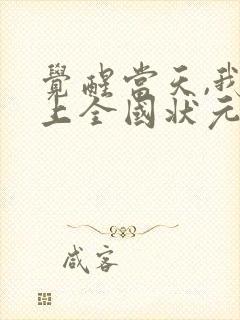 覺醒當天,我
上全國狀元
咸客